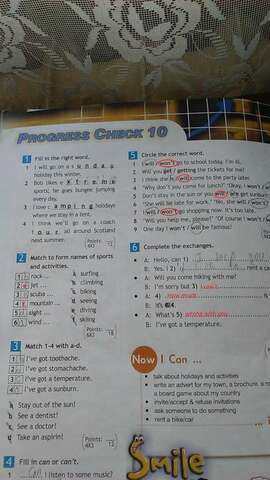 PROGRESS CHECK 10
1 Fill in the right word.
1 I will go on a s u n d a y
holiday this winter.
2 Bob likes e x t r e m e
sports; he goes bungee jumping
every day.
3 I love c a m p i n g holidays
where we stay in a tent.
4 I think we'll go on a coach
t o u r all around Scotland
next summer.
2 Match to form names of sports
and activities.
1 rock ...
2 jet ...
3 scuba ...
4 mountain ...
5 sight ...
6 wind ...
a surfing
b climbing
c biking
d seeing
e diving
f skiing
3 Match 1-4 with a-d.
1 I've got toothache.
2 I've got stomachache.
3 I've got a temperature.
4 I've got a sunburn.
a Stay out of the sun!
b See a dentist!
c See a doctor!
d Take an aspirin!
4 Fill in can or can't.
1 I (listen to some music)
5 Circle the correct word.
1 I will / won't go to school today. I'm ill.
2 Will you get / getting the tickets for me?
3 I think she will come to the party later.
4 "Why don't you come for lunch?" "Okay, I won't
5 Don't stay in the sun or you will / are get sunburnt
6 "She will be late for work." "No, she will / won't
7 I will / won't go shopping now. It's too late.
8 "Will you help me, please?" "Of course I won't
9 One day I won't / will be famous!
6 Complete the exchanges.
A: Hello, can 1)
B: Yes. I 2) rent a
A: Will you come hiking with me?
B: I'm sorry but 3) I can't
A: 4) how much is it?
B: It's £4.
A: What's 5) wrong with you
B: I've got a temperature.
Now I Can ...
• talk about holidays and activities
• write an advert for my town, a brochure, a
a board game about my country
• invite/accept & refuse invitations
• ask someone to do something
• rent a bike/car
Smile